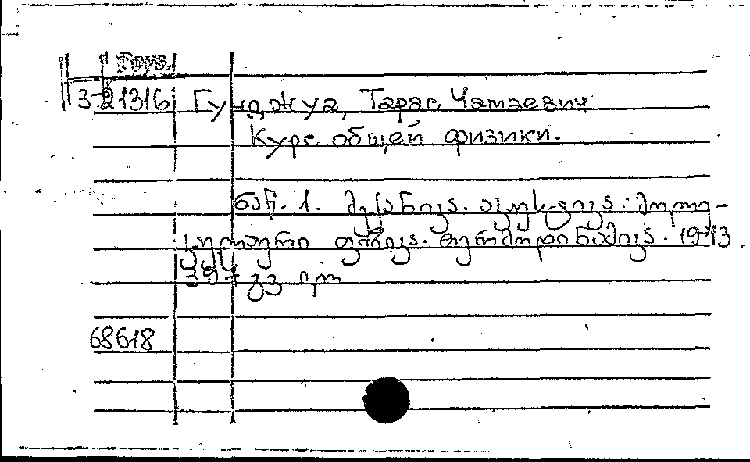 Груз.
3-21316 Гунджуа, Тарас Чатаевич
Курс общей физики.
ნაწ. 1. მექანიკა. აკუსტიკა. მოლე-
კულური ფიზიკა. თერმოდინამიკა. 1973.
397 გვ.
68618